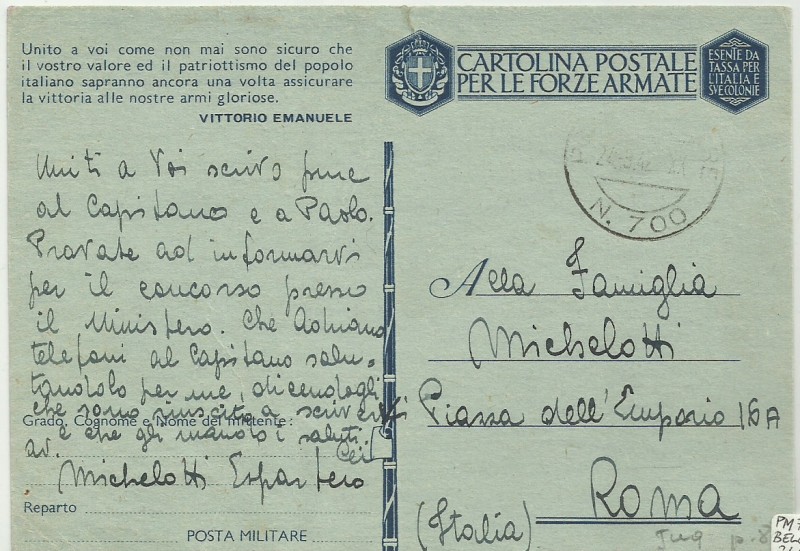 Unito a voi come non mai sono sicuro che
il vostro valore ed il patriottismo del popolo
italiano sapranno ancora una volta assicurare
la vittoria alle nostre armi gloriose.
VITTORIO EMANUELE
CARTOLINA POSTALE
PER LE FORZE ARMATE
ESENTE DA
TASSA PER
L'ITALIA E
SVE COLONIE
N. 700
Uniti a Voi scrivo pure
al Capitano e a Paolo.
Provate ad informarvi
per il concorso presso
il Ministero. Che Adriano
telefoni al Capitano salu-
tandolo per me, dicendogli
che sono riuscito a scriver
Grado, Cognome e Nome del mittente:
e che gli mando i saluti
av.
Michelotti Espartero
Reparto
POSTA MILITARE
Alla Famiglia
Michelotti
Piazza dell'Emporio 16A
Roma
(Italia)
Jug p. 8
PM 7
BELG